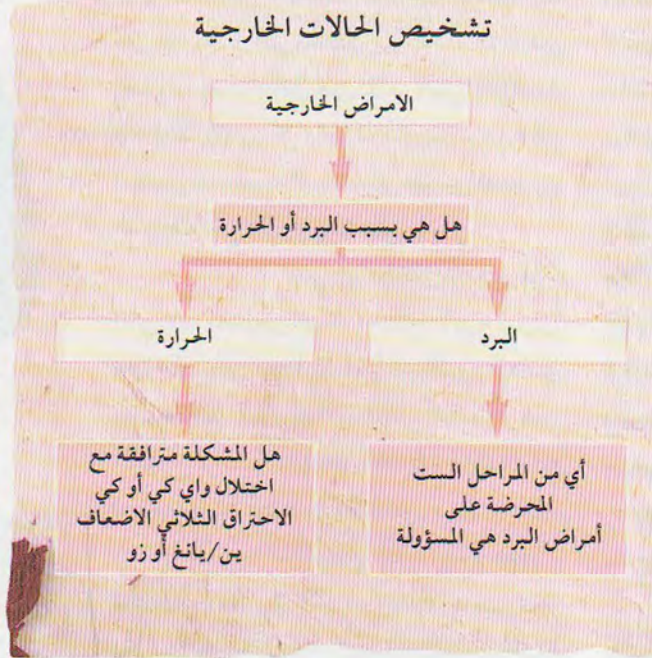 تشخيص الحالات الخارجية
الامراض الخارجية
هل هي بسبب البرد أو الحرارة
البرد
الحرارة
أي من المراحل الست
المحرضة على
أمراض البرد هي المسؤولة
هل المشكلة مترافقة مع
اختلال واي كي أو كي
الاحتراق الثلاثي الاضعاف
ين/يانغ أو زو